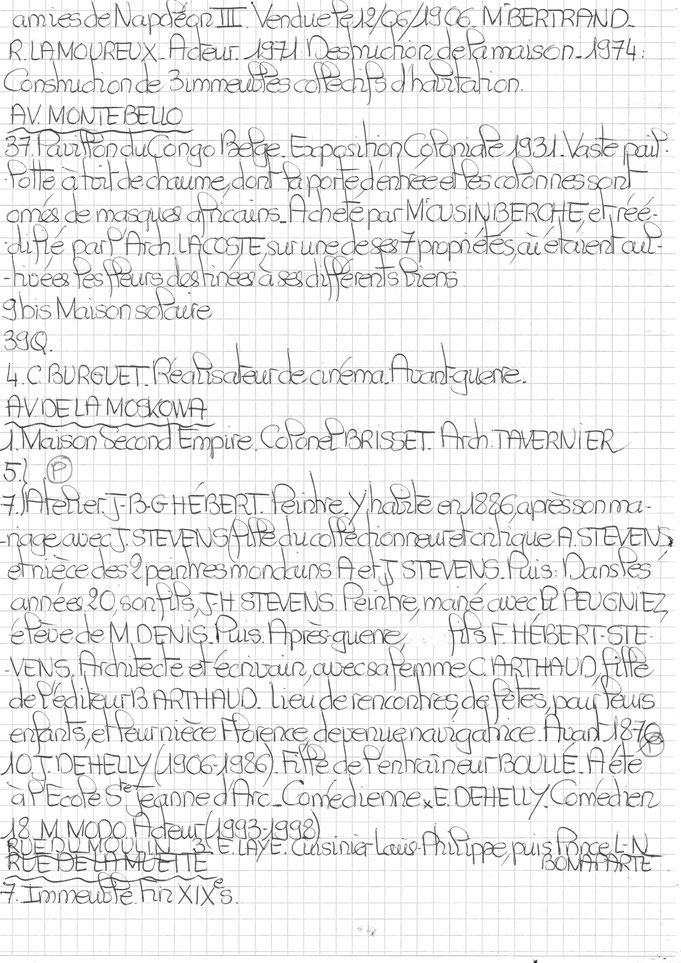 amies de Napoléon III. Vendue le 12/06/1906. Mr BERTRAND_
R. LAMOUREUX_ Acteur. 1971 Destruction de la maison_1974:
Construction de 3 immeubles collectifs d'habitation.
AV. MONTEBELLO
37. Pavillon du Congo Belge. Exposition Coloniale 1931. Vaste pail-
-lotte à toit de chaume, dont la porte d'entrée et les colonnes sont
ornés de masques africains_ Acheté par Mr CUSINBERCHE et réé-
-difié par l'Arch. LACOSTE, sur une de ses 7 propriétés, où étaient cul-
-tivées les fleurs destinées à ses différents biens
9bis Maison solaire
39Q.
4. C. BURGUET. Réalisateur de cinéma. Avant-guerre.
AV. DE LA MOSKOWA
1. Maison Second Empire. Colonel BRISSET. Arch. TAVERNIER
5.} P
7.} Atelier. J-B-G HÉBERT. Peintre. Y habite en 1886, après son ma-
-riage avec J. STEVENS (fille du collectionneur et critique A. STEVENS,
et nièce des 2 peintres mondains A et J STEVENS. Puis: Dans les
années 20, son fils, J-H STEVENS. Peintre, marié avec P. PEUGNIEZ,
élève de M. DENIS. Puis. Après-guerre, fils F. HÉBERT-STE-
-VENS, Architecte et écrivain, avec sa femme C. ARTHAUD, fille
de l'éditeur B ARTHAUD. Lieu de rencontres, de fêtes, pour leurs
enfants, et leur nièce Florence devenue navigatrice. Avant 1870
10 J. DEHELLY (1906-1986). Fille de l'entraîneur BOULLÉ. A été P
à l'Ecole Ste Jeanne d'Arc_ Comédienne x E. DEHELLY. Comédien
18_M. MODO. Acteur (1993-1998)
RUE DU MOULIN 3. E. LAYE. Cuisinier Louis-Philippe, puis Prince L-N_
BONAPARTE
RUE DE LA MUETTE
7. Immeuble. Fin XIXe s.